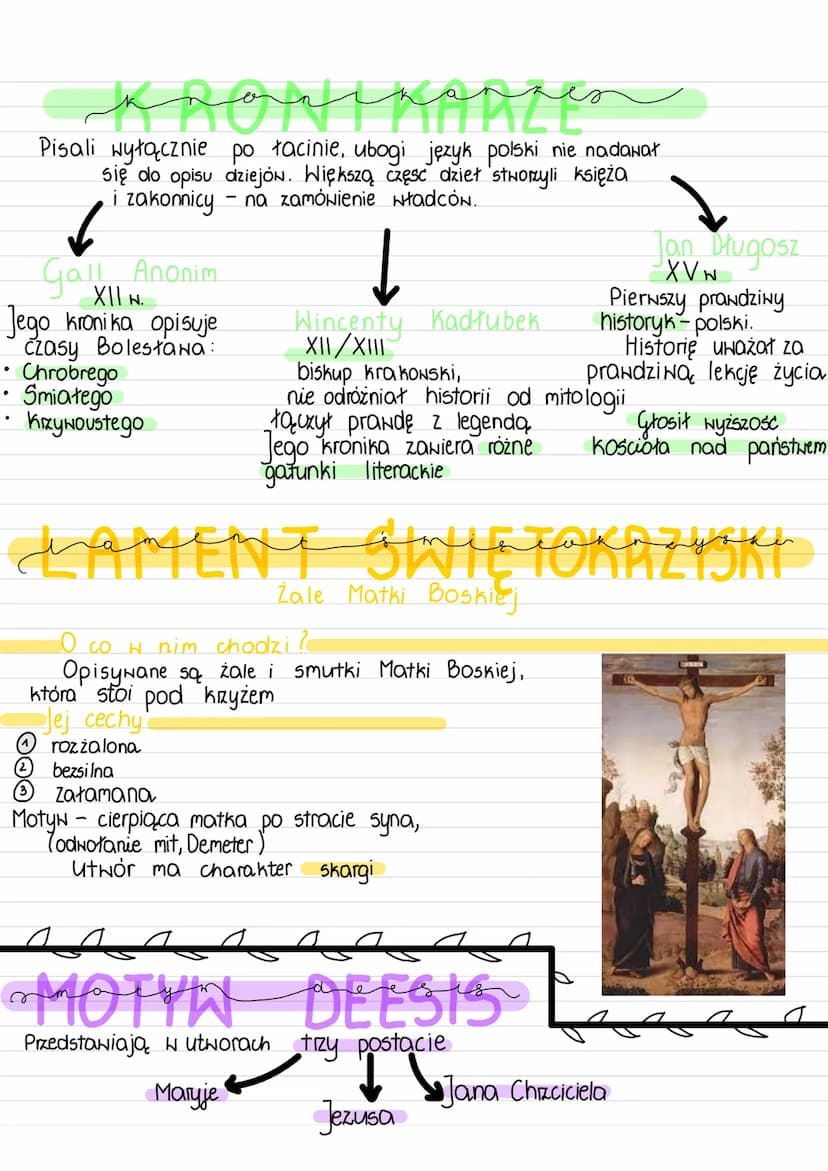 KRONIKARZE
kronikarze
Pisali wyłącznie po łacinie, ubogi język polski nie nadawał
się do opisu dziejów. Większą część dzieł stworzyli księża
i zakonnicy - na zamówienie władców.
Gall Anonim
XII w.
Jego kronika opisuje
czasy Bolesława:
• Chrobrego
• Śmiałego
• Krzywoustego
Wincenty Kadłubek
XII/XIII
biskup krakowski,
nie odróżniał historii od mitologii
łączył prawdę z legendą
Jego kronika zawiera różne
gatunki literackie
Jan Długosz
XV w
Pierwszy prawdziwy
historyk - polski.
Historię uważał za
prawdziwą lekcję życia
Głosił wyższość
kościoła nad państwem
LAMENT ŚWIĘTOKRZYSKI
lament świętokrzyski
Żale Matki Boskiej
O co w nim chodzi?
Opisywane są żale i smutki Matki Boskiej,
która stoi pod krzyżem
Jej cechy
1 rozżalona
2 bezsilna
3 załamana
Motyw - cierpiąca matka po stracie syna,
(odwołanie mit, Demeter)
Utwór ma charakter skargi
MOTYW DEESIS
motyw deesis
Przedstawiają w utworach trzy postacie
Maryje
Jezusa
Jana Chrzciciela